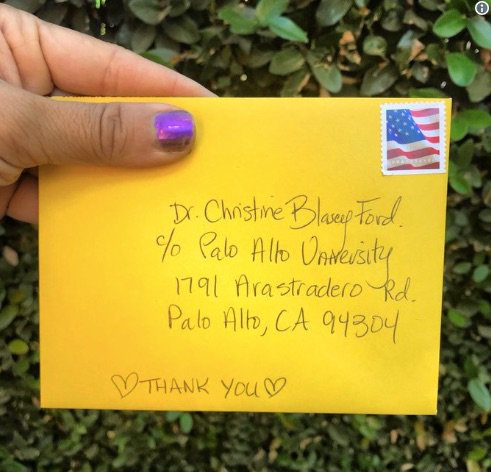 Dr. Christine Blasey Ford.
c/o Palo Alto University
1791 Arastradero Rd.
Palo Alto, CA 94304
♡THANK YOU♡